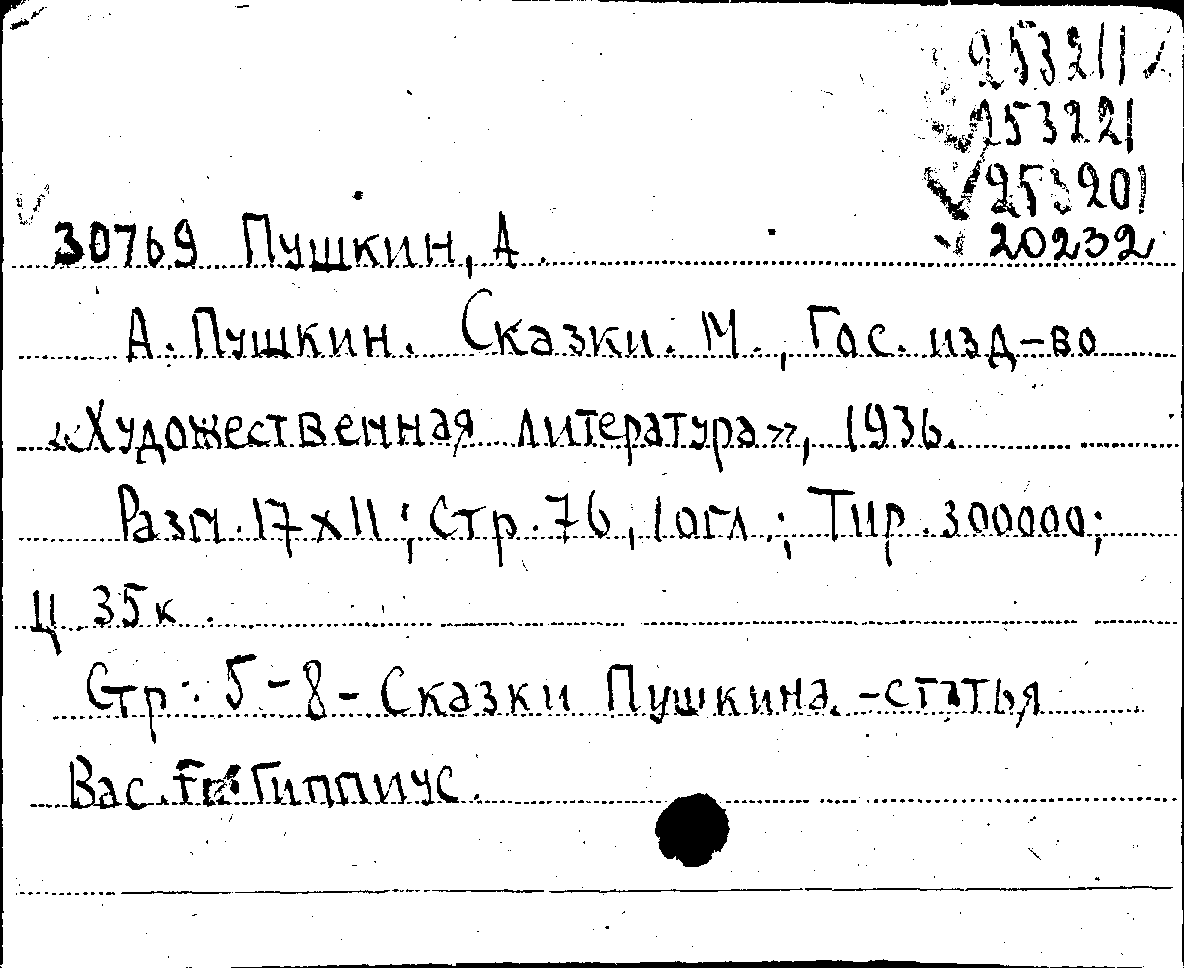 253211
253221
253201
20232
30769 Пушкин, А.
А. Пушкин. Сказки. М., Гос. изд-во
«Художественная литература», 1936.
Разм. 17х11; Стр. 76, 1 огл.; Тир. 300000;
Ц 35к.
Стр: 5-8 - Сказки Пушкина. - статья
Вас. Гиппиус.